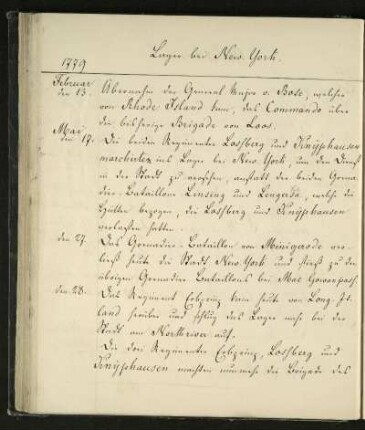 Lager bei New York.
1779
Februar
den 13. Übernahm der General Major v. Bose, welcher
von Rhode Island kam, das Commando über
die bisherige Brigade von Loos.
Mai
den 17. Die beiden Regimenter Lossberg und Knÿphausen
marschirten ins Lager bei New York, um den Dienst
in der Stadt zu versehen, anstatt der beiden Grena-
dier-Bataillone Linsing und Lengerke, welche die
Hütten bezogen, die Lossberg und Knÿphausen
verlassen hatten.
den 27. Das Grenadier-Bataillon von Minigerode ver-
ließ heute die Stadt New York und stieß zu den
übrigen Grenadier Bataillons bei Mac Gowans pass.
den 28. Das Regiment Erbprinz kam heute von Long Is-
land herüber und schlug das Lager nahe bei der
Stadt am Northriver auf.
Die drei Regimenter Erbprinz, Lossberg und
Knÿphausen machten nunmehr die Brigade des